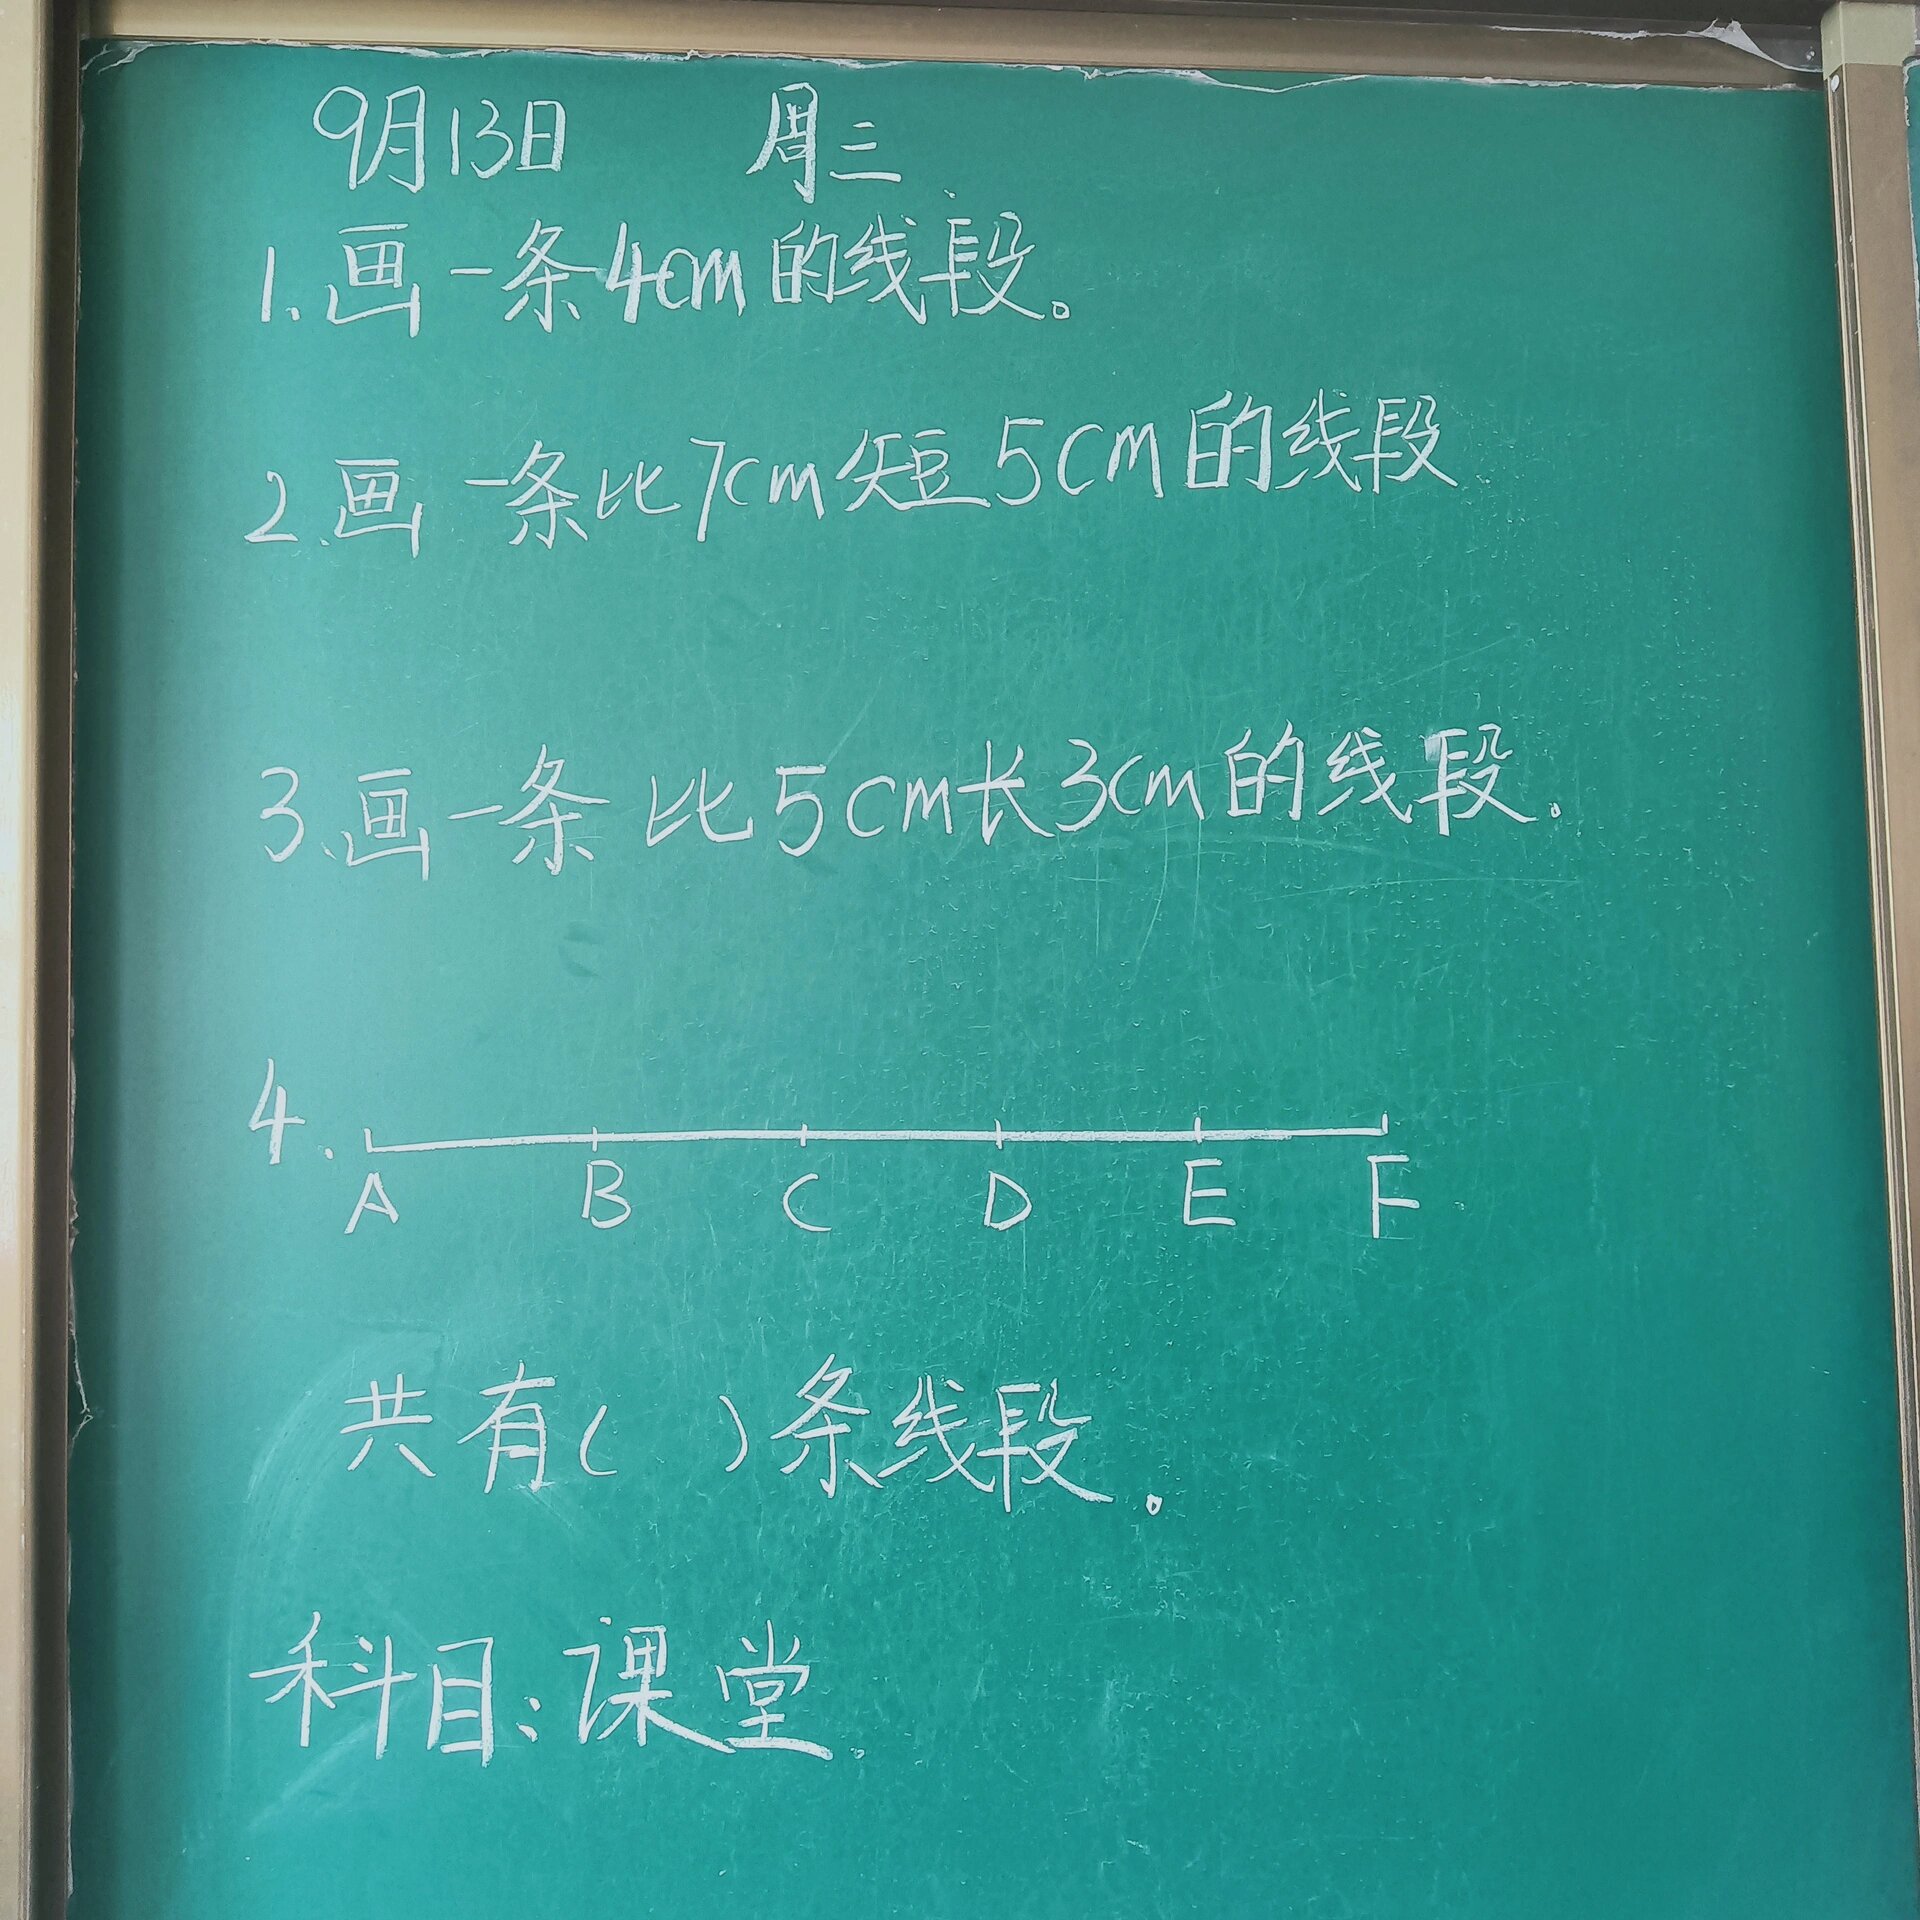 9月13日 周三
1.画一条4cm的线段。
2.画一条比7cm短5cm的线段
3.画一条比5cm长3cm的线段.
4.
A B C D E F
共有( )条线段.
科目:课堂